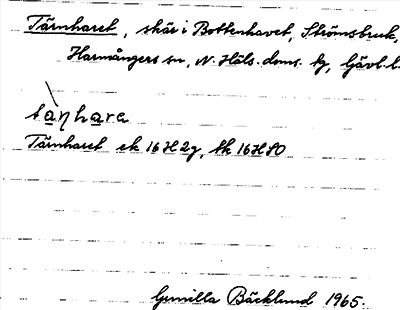 Tärnharet, skär i Bottenhavet, Strömsbruk,
Harmångers sn, N. Häls. doms. tg, Gävl. l.
tạŋhạra
Tärnharet ek 16H2g, tk 16H SO
Gunilla Bäcklund 1965.